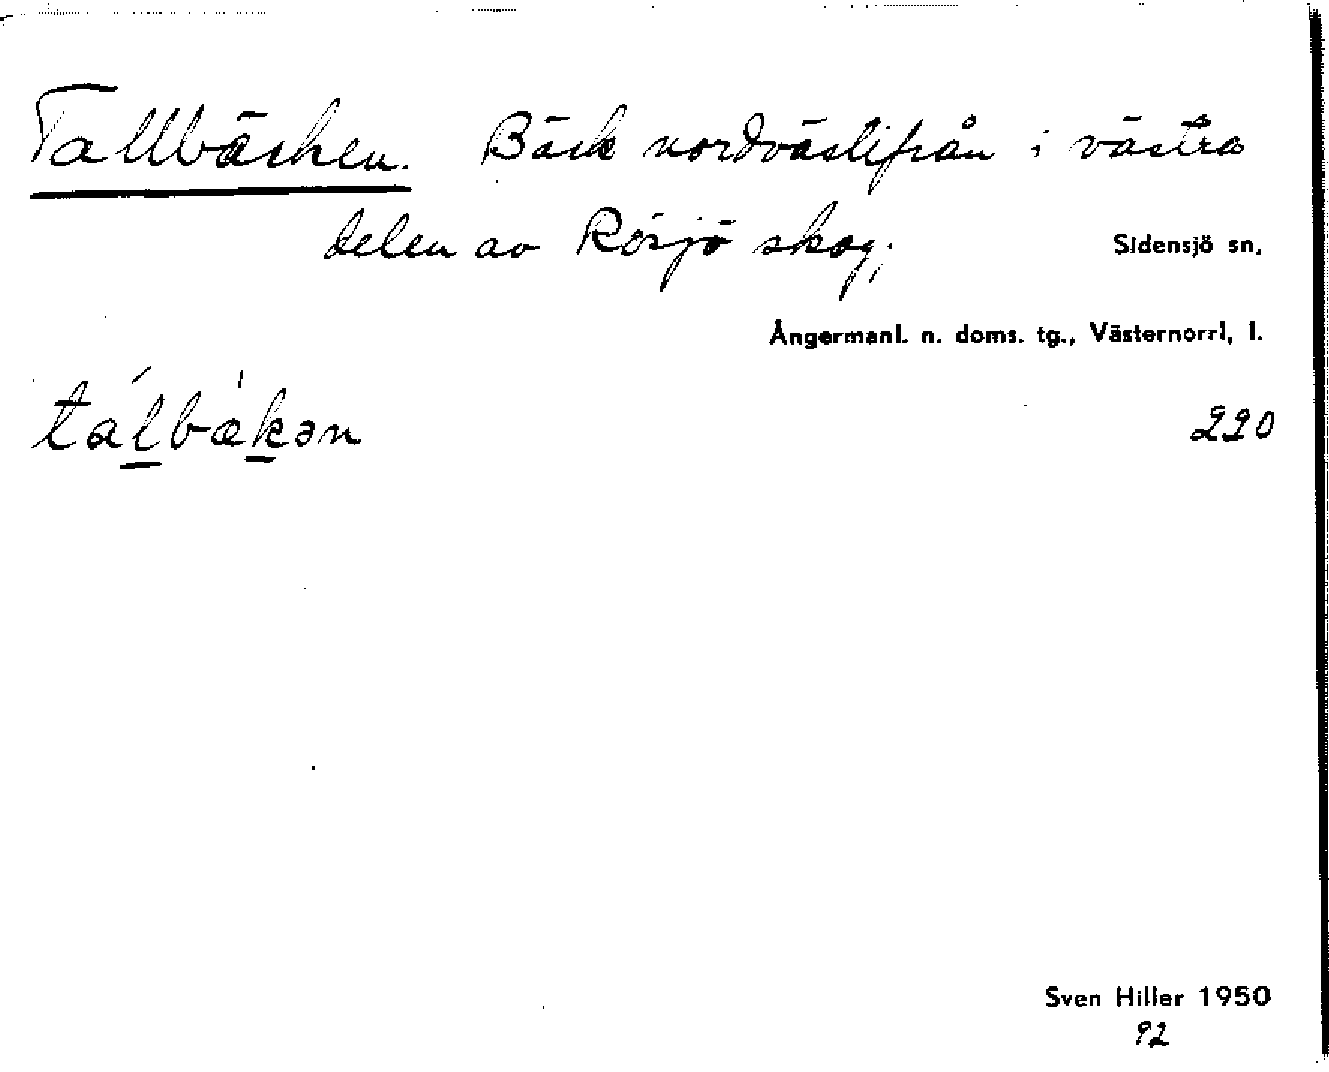 Tallbäcken. Bäck nordvästifrån i västra
delen av Rösjö skog;
Sidensjö sn.
Ångermanl. n. doms. tg., Västernorrl. l.
tálbækən
220
Sven Hiller 1950
92